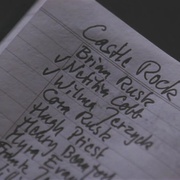 Castle Rock
Brian Rusk
✓ Nettie Cobb
✓ Wilma Jerzyck
Cora Rusk
Hugh Priest
Henry Beaufort